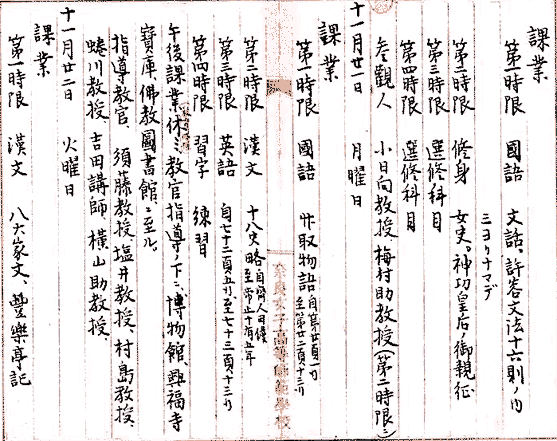 課業
第一時限 國語 文話、許容文法十六則ノ内
三ヨリナマデ
第二時限 修身 女史。神功皇后ノ御親征
第三時限 選修科目
第四時限 選修科目
参觀人 小日向教授 梅村助教授(第二時限ニ)
十一月廿一日 月曜日
課業
第一時限 國語 竹取物語
第二時限 漢文 十八史略
第三時限 英語 自七十二頁五行至七十三頁十三行
第四時限 習字 練習
午後課業休ミ教官指導ノ下ニ、博物館、興福寺
寶庫佛教圖書館ニ至ル。
指導教官、須藤教授、塩井教授、村島教授、
蜷川教授、吉田講師、横山助教授、
十一月廿二日 火曜日
課業
第一時限 漢文 八大家文、豐樂亭記
奈良女子高等師範學校